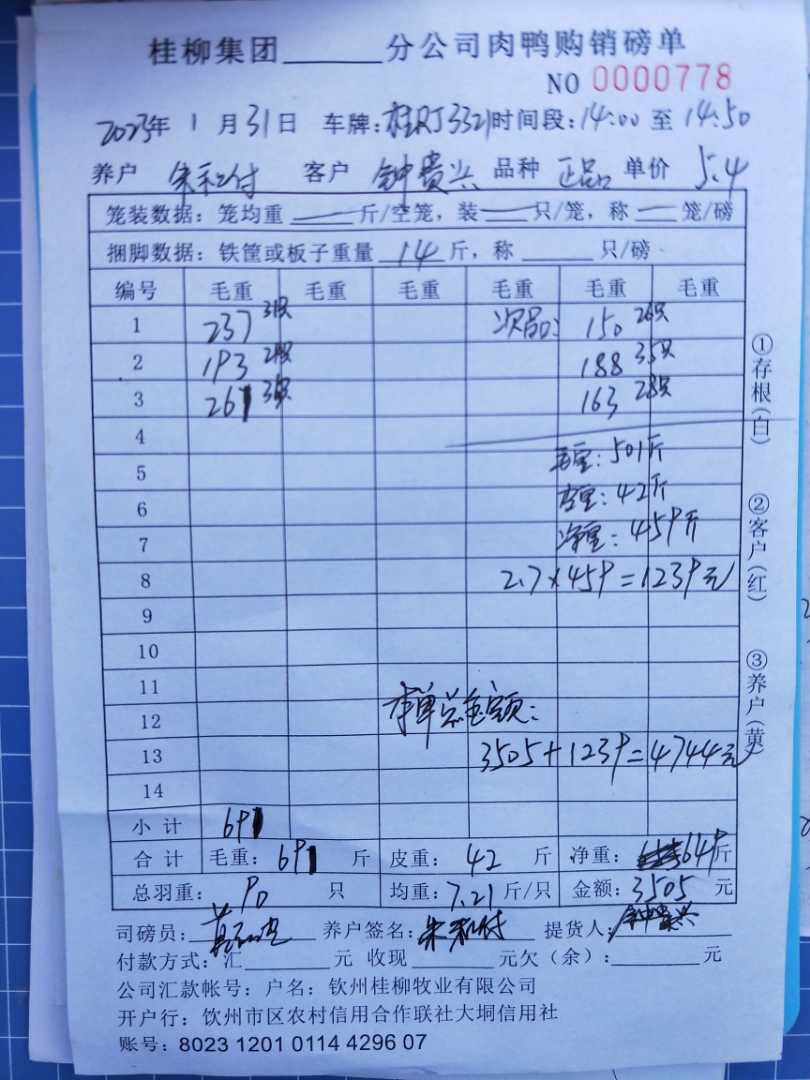 桂柳集团______分公司肉鸭购销磅单
NO 0000778
2023年 1 月 31 日 车牌:桂RJ3321 时间段:14:00 至 14:50
养户 朱和付 客户 钟贵兴 品种 正品 单价 5.4
笼装数据:笼均重 — 斤/空笼,装 — 只/笼,称 — 笼/磅
捆脚数据:铁筐或板子重量 14 斤,称______只/磅
编号 毛重 毛重 毛重 毛重 毛重 毛重
1 237 31只 次品: 150 26只
2 193 188 35只
3 261 163 28只
4
5 毛重:501斤
6 皮重:42斤
7 净重:459斤
8 2.7×459=1239元
9
10
11
12 本单总金额:
13 3505+1239=4744元
14
小计 691
合计 毛重:691 斤 皮重: 42 斤 净重: 649斤
总羽重: 90 只 均重:7.21斤/只 金额:3505 元
司磅员: 养户签名:朱和付 提货人:钟贵兴
付款方式:汇______元 收现______元欠(余):______元
公司汇款帐号:户名:钦州桂柳牧业有限公司
开户行:饮州市区农村信用合作联社大垌信用社
账号:8023 1201 0114 4296 07
①存根(白)
②客户(红)
③养户(黄)